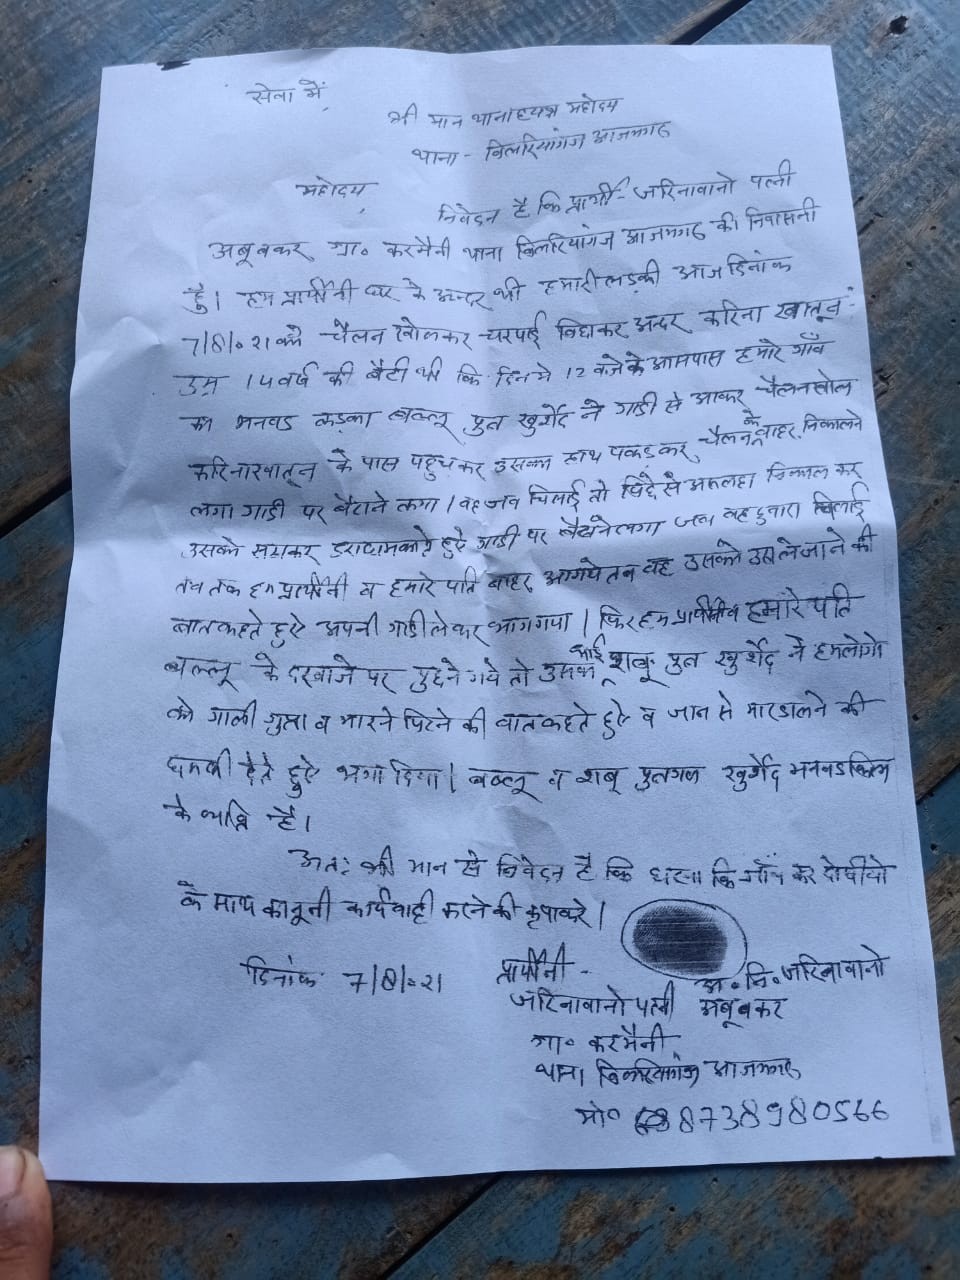 सेवा में
श्री मान थानाध्यक्ष महोदय
थाना - बिलरियागंज आजमगढ
महोदय,
निवेदन है कि प्रार्थी - जरिनाबानो पत्नी
अबूबकर ग्रा० करमैनी थाना बिलरियागंज आजमगढ की निवासनी
हुँ। हम प्रार्थीनी घर के अन्दर थी हमारी लडकी आज दिनांक
7/8/021 को चैलन खोलकर चरपाई बिछाकर अन्दर करिना खातून
उम्र 14 वर्ष की बैटी थी कि दिन मे 12 बजे के आसपास हमारे गाँव
का मनबड लडका बब्लू पुत्र खुर्शेद ने गाडी से आकर चैलन खोल
करिना खातून के पास पहुचकर उसका हाथ पकडकर चैलन के बाहर निकालने
लगा गाडी पर बैठाने लगा। वह जब चिलाई तो पिछे से असलहा निकाल कर
उसको सटाकर डराधमकाते हुऐ गाडी पर बैठाने लगा जब वह दुबारा चिलाई
तब तक हम प्रार्थीनी व हमारे पति बाहर आगये तब वह उसको उठा लेजाने की
बात कहते हुऐ अपनी गाडी लेकर भाग गया। फिर हम प्रार्थीनी व हमारे पति
बल्लू के दरवाजे पर पुछने गये तो उसका भाई शबू पुत्र खुर्शेद ने हमलोगो
को गाली गुप्ता व मारने पिटने की बात कहते हुऐ व जान से मारडालने की
धमकी देते हुऐ भगा दिया। बब्लू व शबू पुत्रगण खुर्शेद मनबड किस्म
के व्यक्ति है।
अतः श्री मान से निवेदन है कि घटना कि जाँच कर दोषीयो
के साथ कानूनी कार्यवाही करने की कृपा करे।
दिनांक 7/8/021 प्रार्थीनी - अ० नि० जरिनाबानो
जरिनाबानो पत्नी अबूबकर
ग्रा० करमैनी
थाना बिलरियागंज आजमगढ
मो० 8738980566